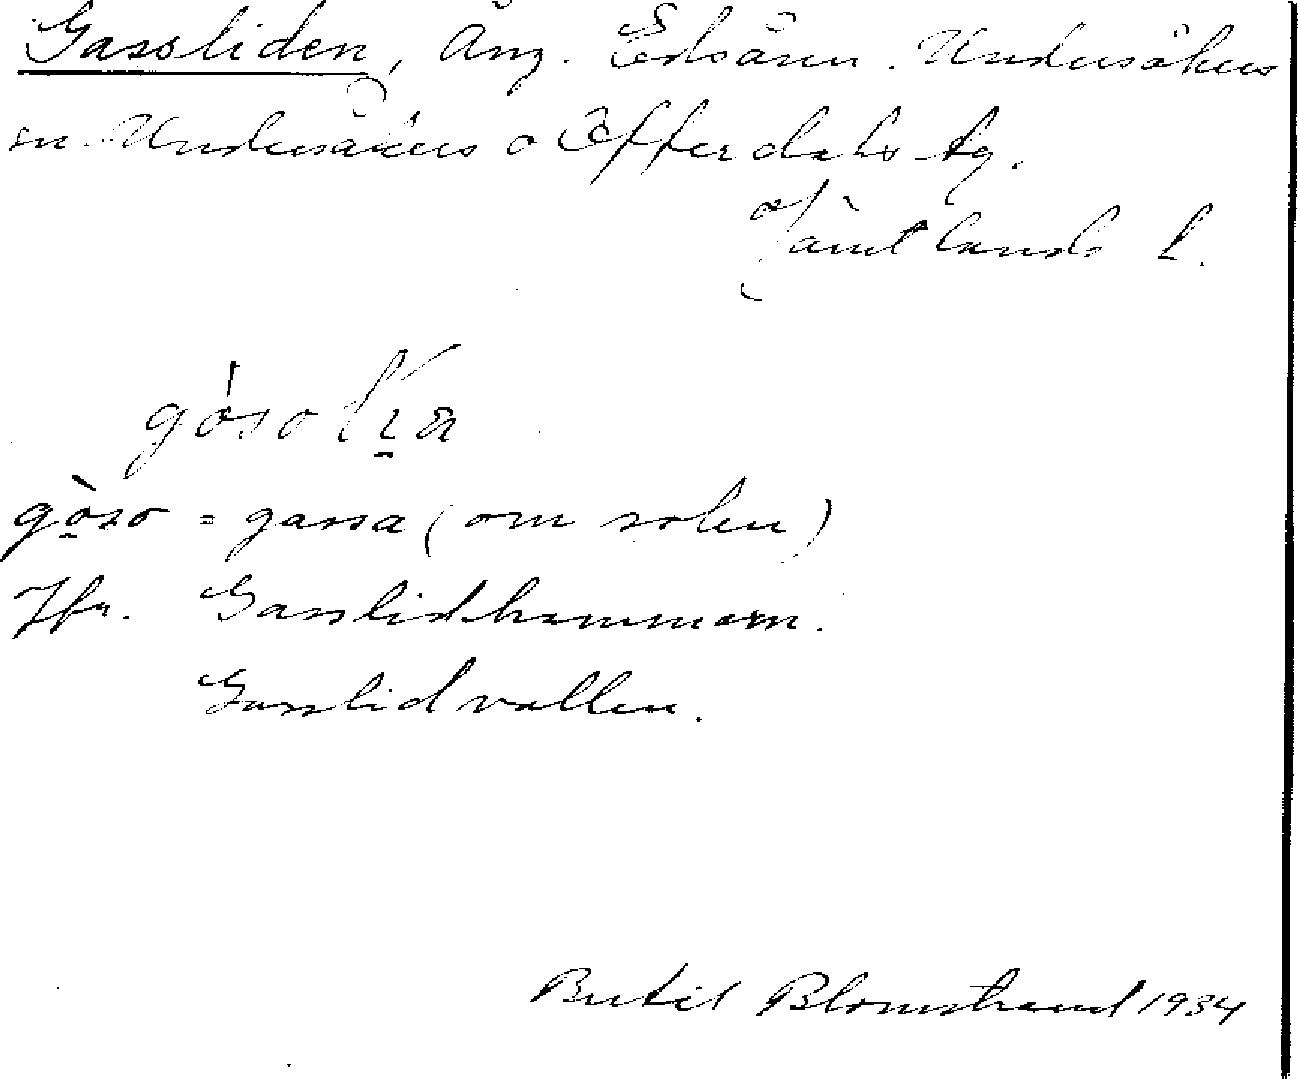 Gassliden, Äng. Edsåsen. Undersåkers
sn. Undersåkers o Offerdals tg.
Jämtlands l.
gȯso
gòso = gassa (om solen)
Jfr. Gasslidhammarn.
Gasslidvallen.
Bertil Blomstrand 1934